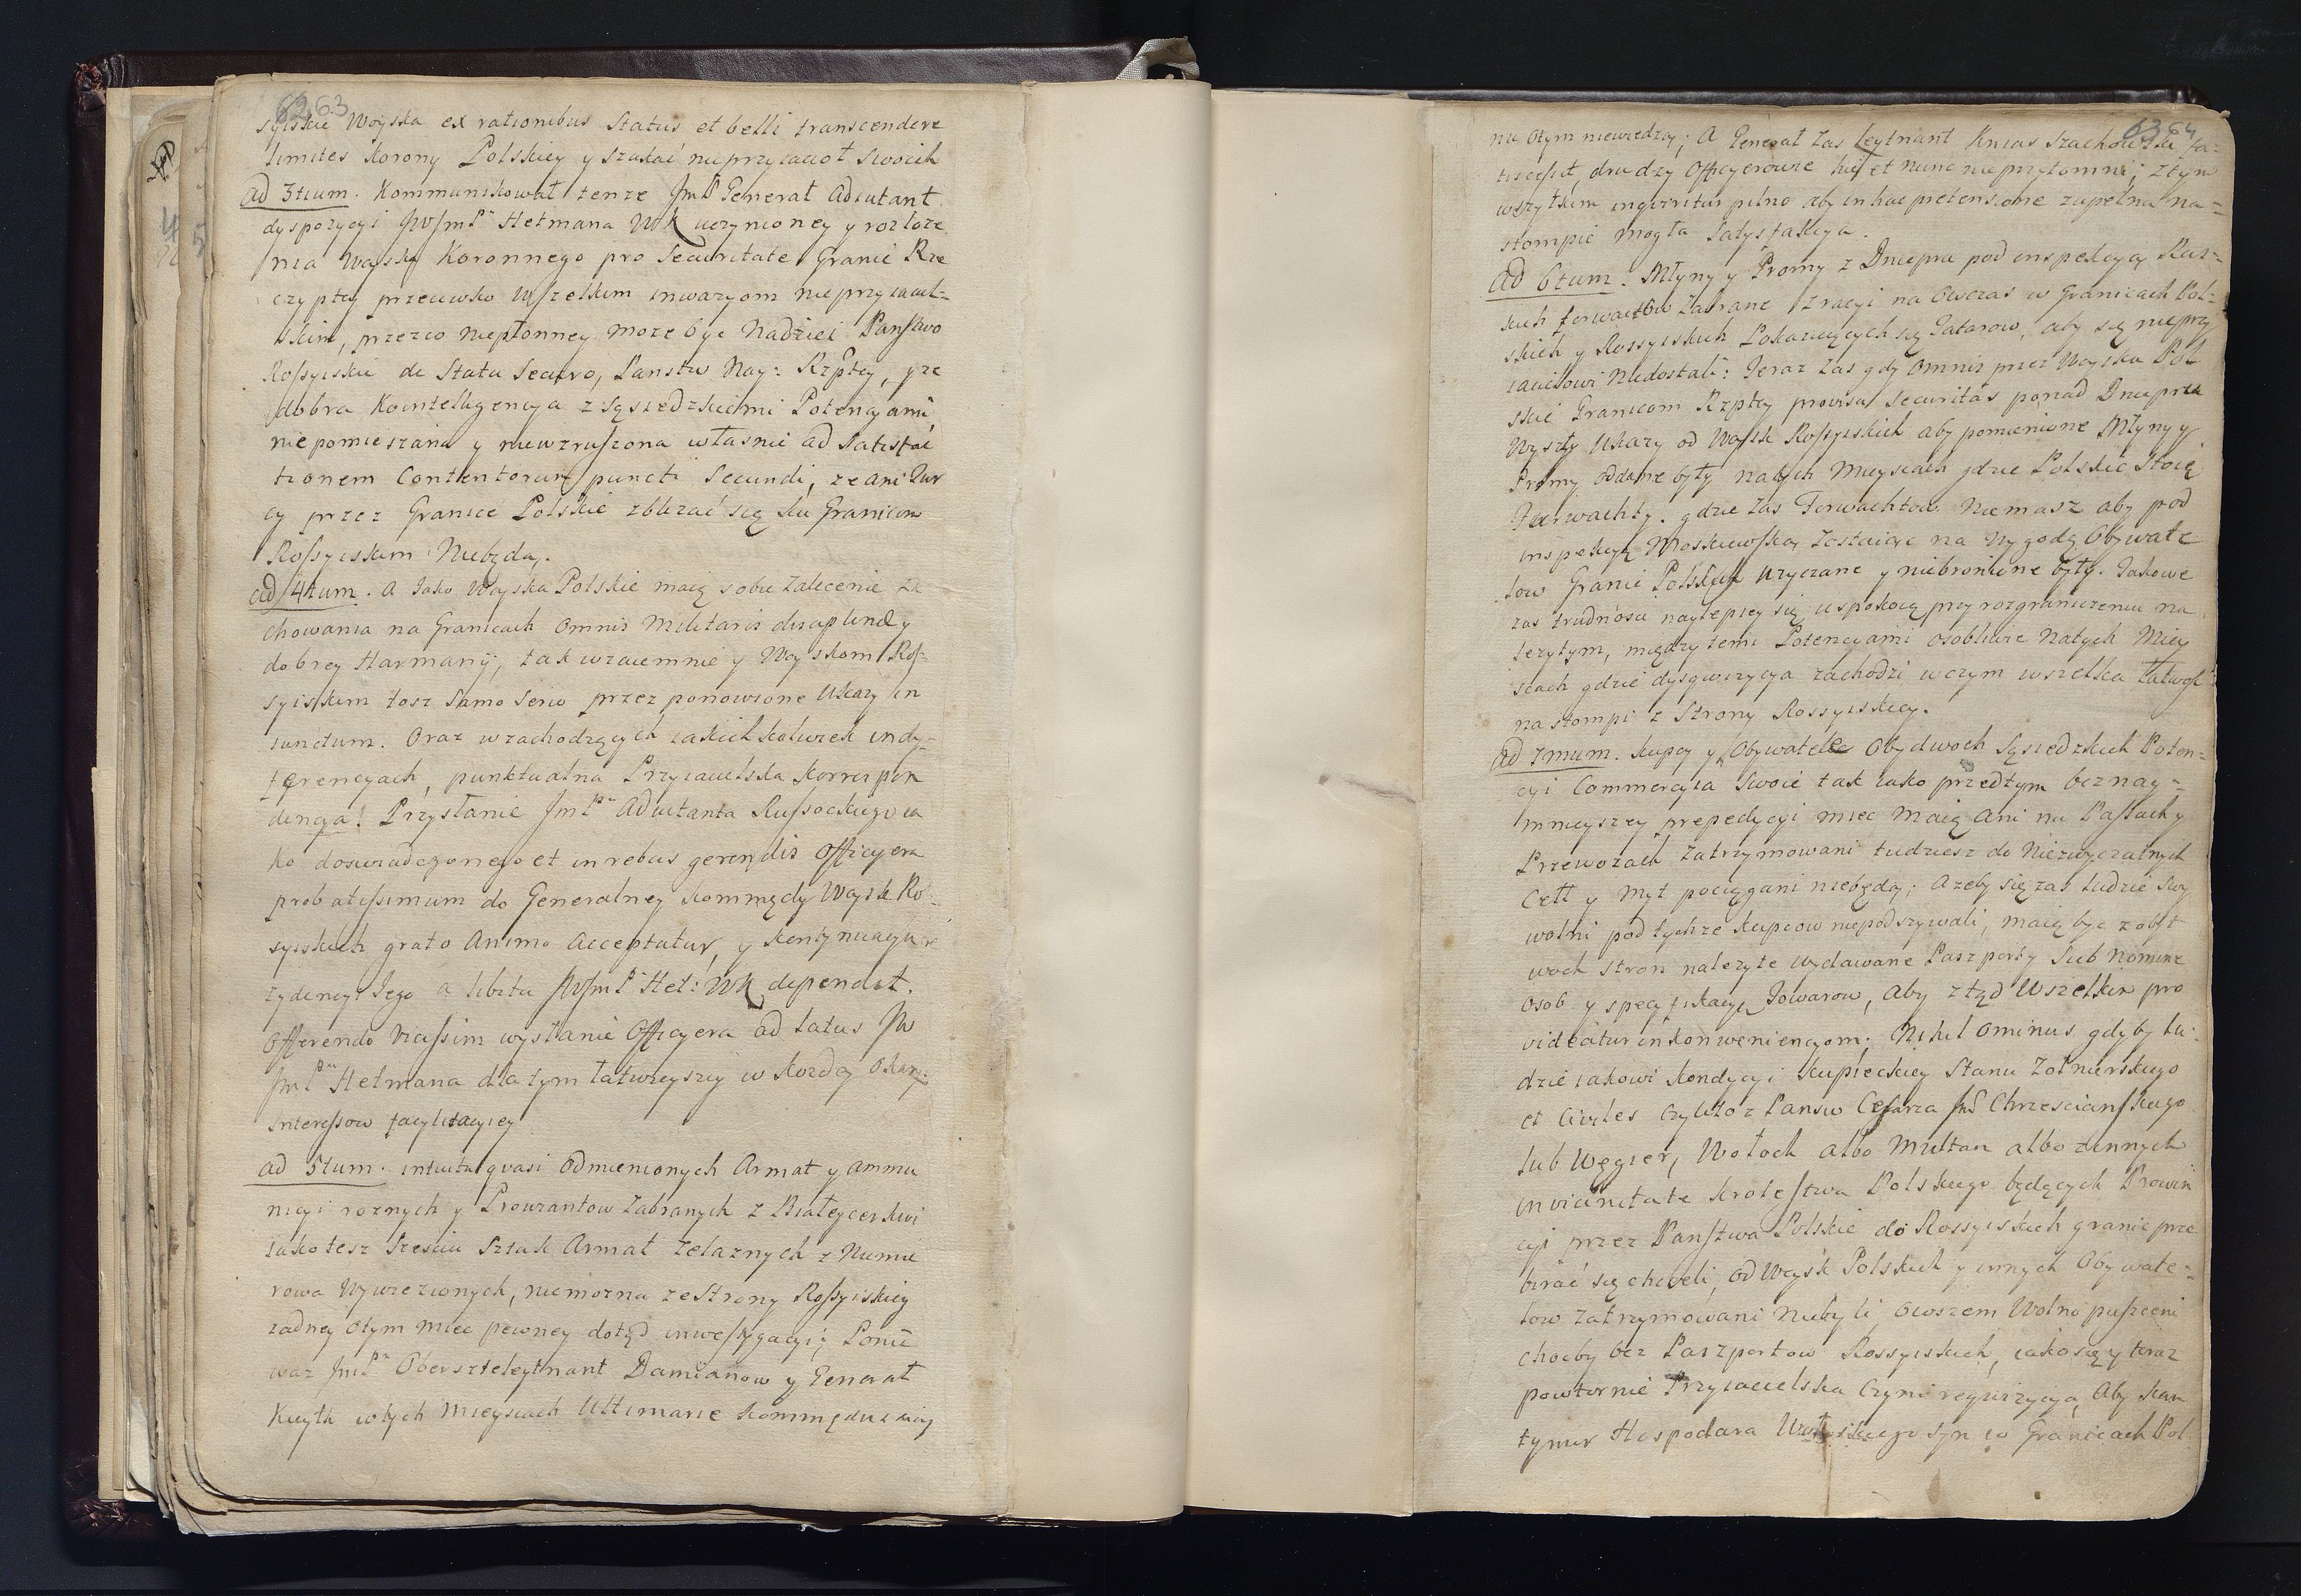 62 63
syiskie Woyska ex rationibus Status et belli transcendere
limites Korony Polskiey y szukać nieprzyiacioł swoich
ad 3tium. Kommunikował tenze JmP Generał Adiutant
dyspozycyi JWJmPa Hetmana WK uczynioney y rozłoze
nia Woyska Koronnego pro Securitate Granic Rze
czyptey przeciwko wszelkim inwazyom nieprzyiaciel=
skim, przezco niepłonney moze byc Nadziei Panstwo
Rossyiskie de Statu Securo, Panstw Nay: Rzptey, yze
dobra Kointelligencya z Sąsiedzkiemi Potencyami
niepomieszana y niewzruszona własnie ad Satisfac
tionem Contentorum puncti Secundi, ze ani Tur
cy przez Granice Polskie zblizać się ku Granicom
Rossyiskim Niebędą.
ad 4tum. A Jako Woyska Polskie maią sobie zalecenie za
chowania na Granicach omnis Militaris disciplinae y
dobrey Harmanij, tak wzaiemnie y Woyskom Ros=
syiskim tosz samo Serio przez ponowione Ukazy in
iunctum. Oraz wzachodzących iakichkolwiek indy=
ferencyach, punktualna Przyiacielska Korrespon
dencya! Przysłanie JmPa Adiutanta Russockiego ia
ko doswiadczonego et in rebus gerendis Officyera
probatissimum do Generalney Kommędy Woysk Ro=
syiskich grato Animo Acceptatur, y Kontynuacya re
zydencyi Jego a libitu JWJmPa Het: WK dependet.
Offerendo vicissim wysłanie Officyera ad latus JW
JmPa Hetmana dla tym łatwieyszey w kozdey Okazyi
Interessow facylitacyiey
ad 5tum. intuitu quasi Odmienionych Armat y ammu
nicyi roznych y Prowiantow Zabranych z Białeycerkwi
iakotesz Szesciu Sztuk Armat Zelaznych z Niemie
rowa Wywiezionych, niemozna ze Strony Rossyiskiey
zadney Otym miec pewney dotąd inwestygacyi; Ponie
waz JmPa Oberszteleytnant Damianow y Generał
Kieyth wtych Mieyscach Ultimarie Kommęduiący
63 64
nic Otym niewiedzą; A Generał Zas Leytnant Knias Szachowski fa=
tis cessit, drudzy Officyerowie hic et nunc nieprzytomni; Ztym
wszytkim inquiritur pilno aby in hac pretensione zupełna na=
stompić mogła Satysfakcya.
Ad 6tum. Młyny y Promy z Dniepru pod inspekcyą Rus=
kich forwachtow Zabrane z racyi na Owczas w Granicach Pol=
skich y Rossyiskich Pokazuiących się Tatarow, aby się nieprzy
iacielowi Niedostali: Teraz Zas gdy Omnis przez Woyska Pol
skie Granicom Rzptey provisa securitas ponad Dnieprze
Wyszły Ukazy od Woysk Rossyiskich aby pomienione Młyny y
Promy oddane były natych Mieyscach gdzie Polskie Stoią
Forwachty. gdzie Zas Forwachtow Niemasz aby pod
inspekcyą Moskiewską Zostaiąc na Wygodę Obywate
low Granic Polskich Uzyczane y niebronione były. Jakowe
zas trudnosci naylepiey się uspokoią przy rozgraniczeniu na
lezytym, między temi Potencyami osobliwie Natych Miey
scach gdzie dysqwizycya zachodzi wczym wszelka łatwosc
nastompi z Strony Rossyiskiey.
ad 7mum. Kupcy y Obywatele Obydwoch Sąsiedzkich Poten=
cyi Commercyia Swoie tak iako przedtym beznay=
mnieyszey prepedycyi miec maią Ani na Passach y
Przewozach Zatrzymowani tudziesz do Niezwyczaynych
Cełł y Myt pociągani niebędą; Azeby się zas ludzie Swy
wolni pod tychze Kupcow niepodszywali, maią byc z oby
woch stron nalezyte wydawane Paszporty Sub Nomine
Osob y specyfikacyi Towarow, Aby ztąd Wszelkim pro
videatur inkonweniencyom. Nihil ominus gdyby lu=
dzie iakowi Kondycyi Kupieckiey Stanu Zołnierskiego
et Civiles czyli to z Panstw Cesarza JmC Chrzescianskiego
lub Węgier, Wołoch albo Multan albo zinnych
in vicinitate Krolestwa Polskiego będących Prowin
cyi przez Panstwa Polskie do Rossyiskich granic prze
birać się chcieli, od Woysk Polskich y innych Obywate=
low zatrzymowani Niebyli, owszem Wolno puszczeni
choćby bez Paszportow Rossyiskich, iako się y teraz
powtornie Przyiacielska Czyni reqwizycya, Aby Kan
tymir Hospodara Wołoskiego Syn w Granicach Pol